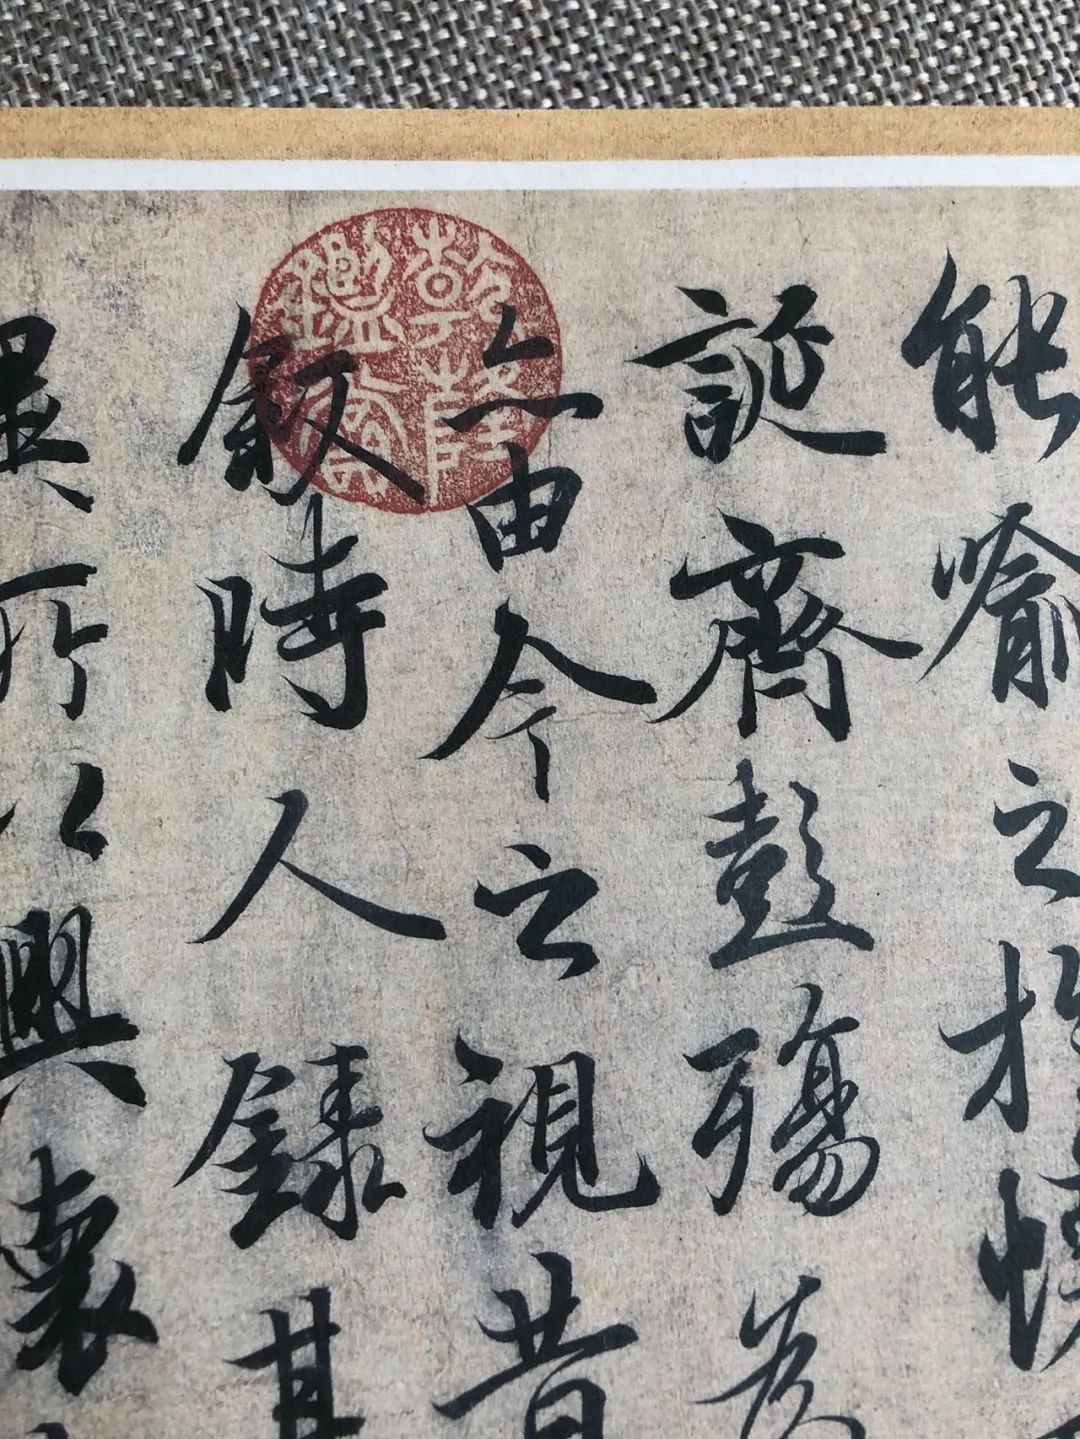 能喻之於懷
誕齊彭殤為
亦由今之視昔
叙時人錄其
異所以興懷
乾隆鑑賞